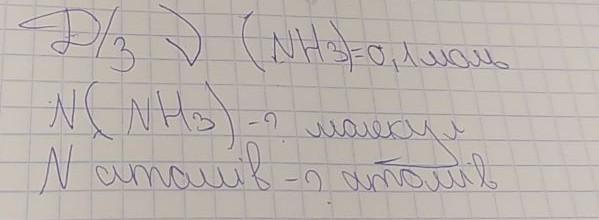 Д/з ν (NH3)=0,1моль
N(NH3)-? молекул
N атомів-? атомів